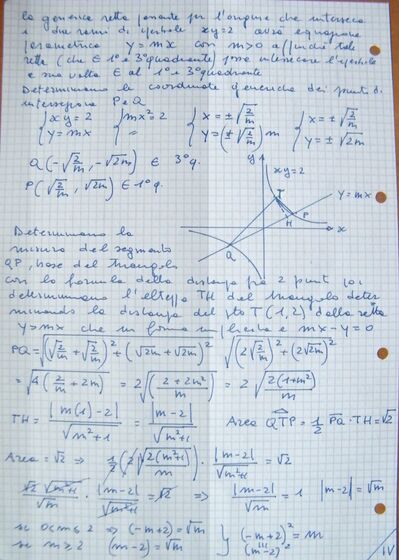 la generica retta passante per l'origine che interseca
i due rami di iperbole xy=2 avrà equazione
parametrica y=mx con m>0 affinché tale
retta (che ∈ 1° e 3° quadrante) possa intersecare l'iperbole
a sua volta ∈ al 1° e 3° quadrante
Determiniamo le coordinate generiche dei punti di
intersezione P e Q
{xy=2 y=mx {mx²=2 = {x=±√(2/m) y=(±√(2/m))m {x=±√(2/m) y=±√2m
Q(-√(2/m), -√2m) ∈ 3°q.
P(√(2/m), √2m) ∈ 1°q.
y
xy=2
T
y=mx
P
H
x
Q
Determiniamo la
misura del segmento
QP, base del triangolo
con la formula della distanza fra 2 punti poi
determiniamo l'altezza TH del triangolo deter
minando la distanza del pto T(1,2) dalla retta
y=mx che in forma implicita è mx-y=0
PQ=√((√(2/m)+√(2/m))²+(√2m+√2m)²) √((2√(2/m))²+(2√2m)²)
=√(4(2/m+2m)) = 2√((2+2m²)/m) = 2√(2(1+m²)/m)
TH = |m(1)-2|/√(m²+1) = |m-2|/√(m²+1) Area QTP = 1/2 PQ·TH=√2
Area=√2 ⇒ 1/2(2√(2(m²+1)/m))·|m-2|/√(m²+1) = √2
√2 √(m²+1)/√m · |m-2|/√(m²+1) = √2 ⇒ |m-2|/√m = 1 |m-2|=√m
se 0<m≤2 ⇒ (-m+2)=√m } (-m+2)² = m
se m≥2 (m-2)=√m (m-2)²
IV